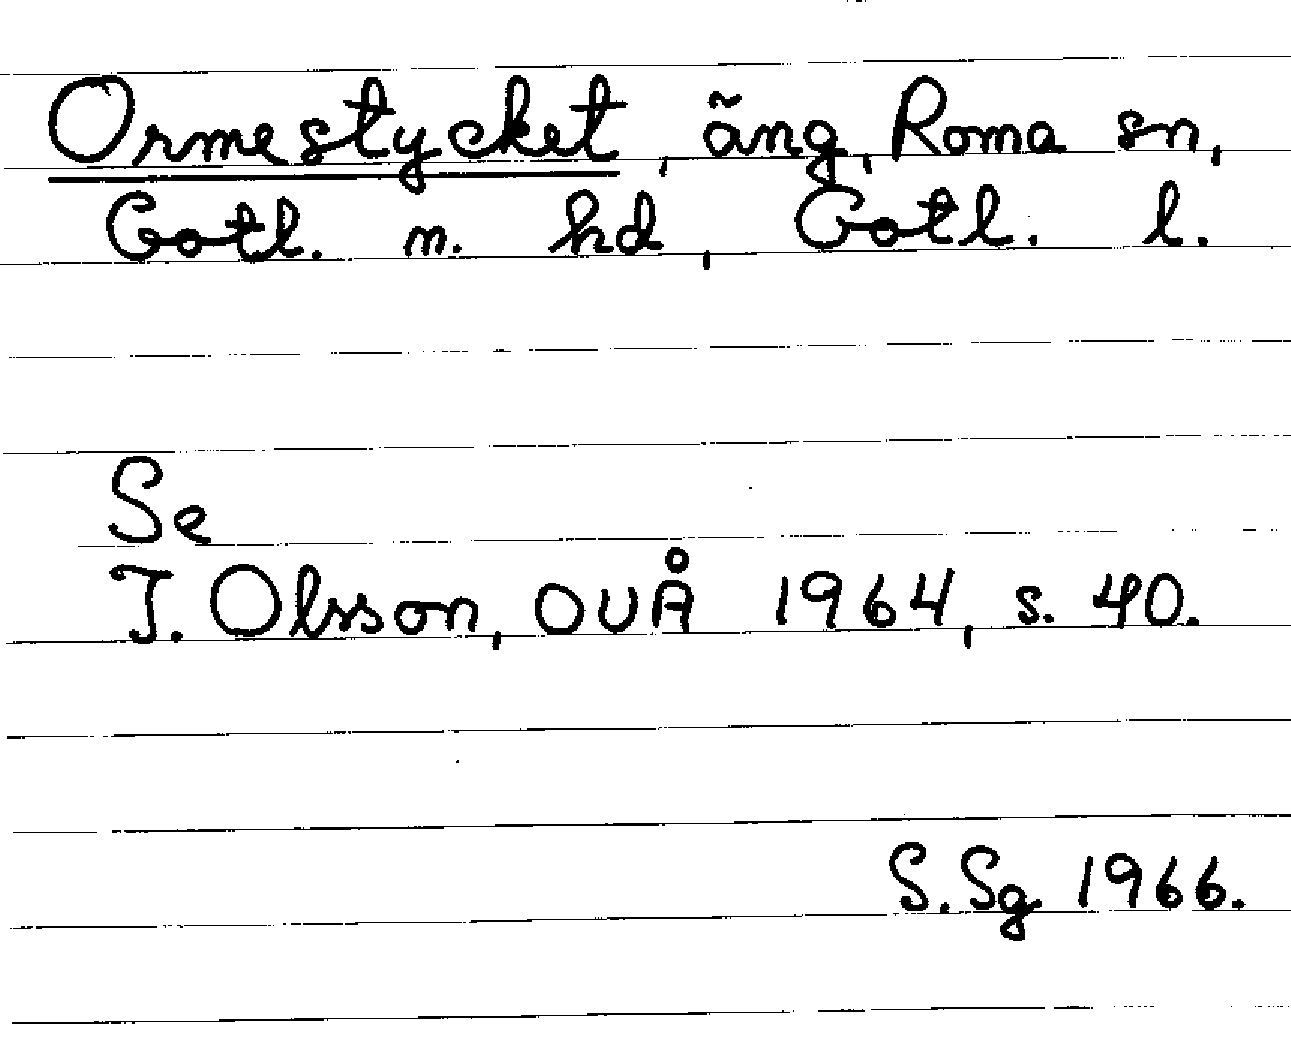 Ormestycket, äng, Roma sn,
Gotl. n. hd, Gotl. l.
Se
I. Olsson, OUÅ 1964, s. 40.
S. Sg 1966.